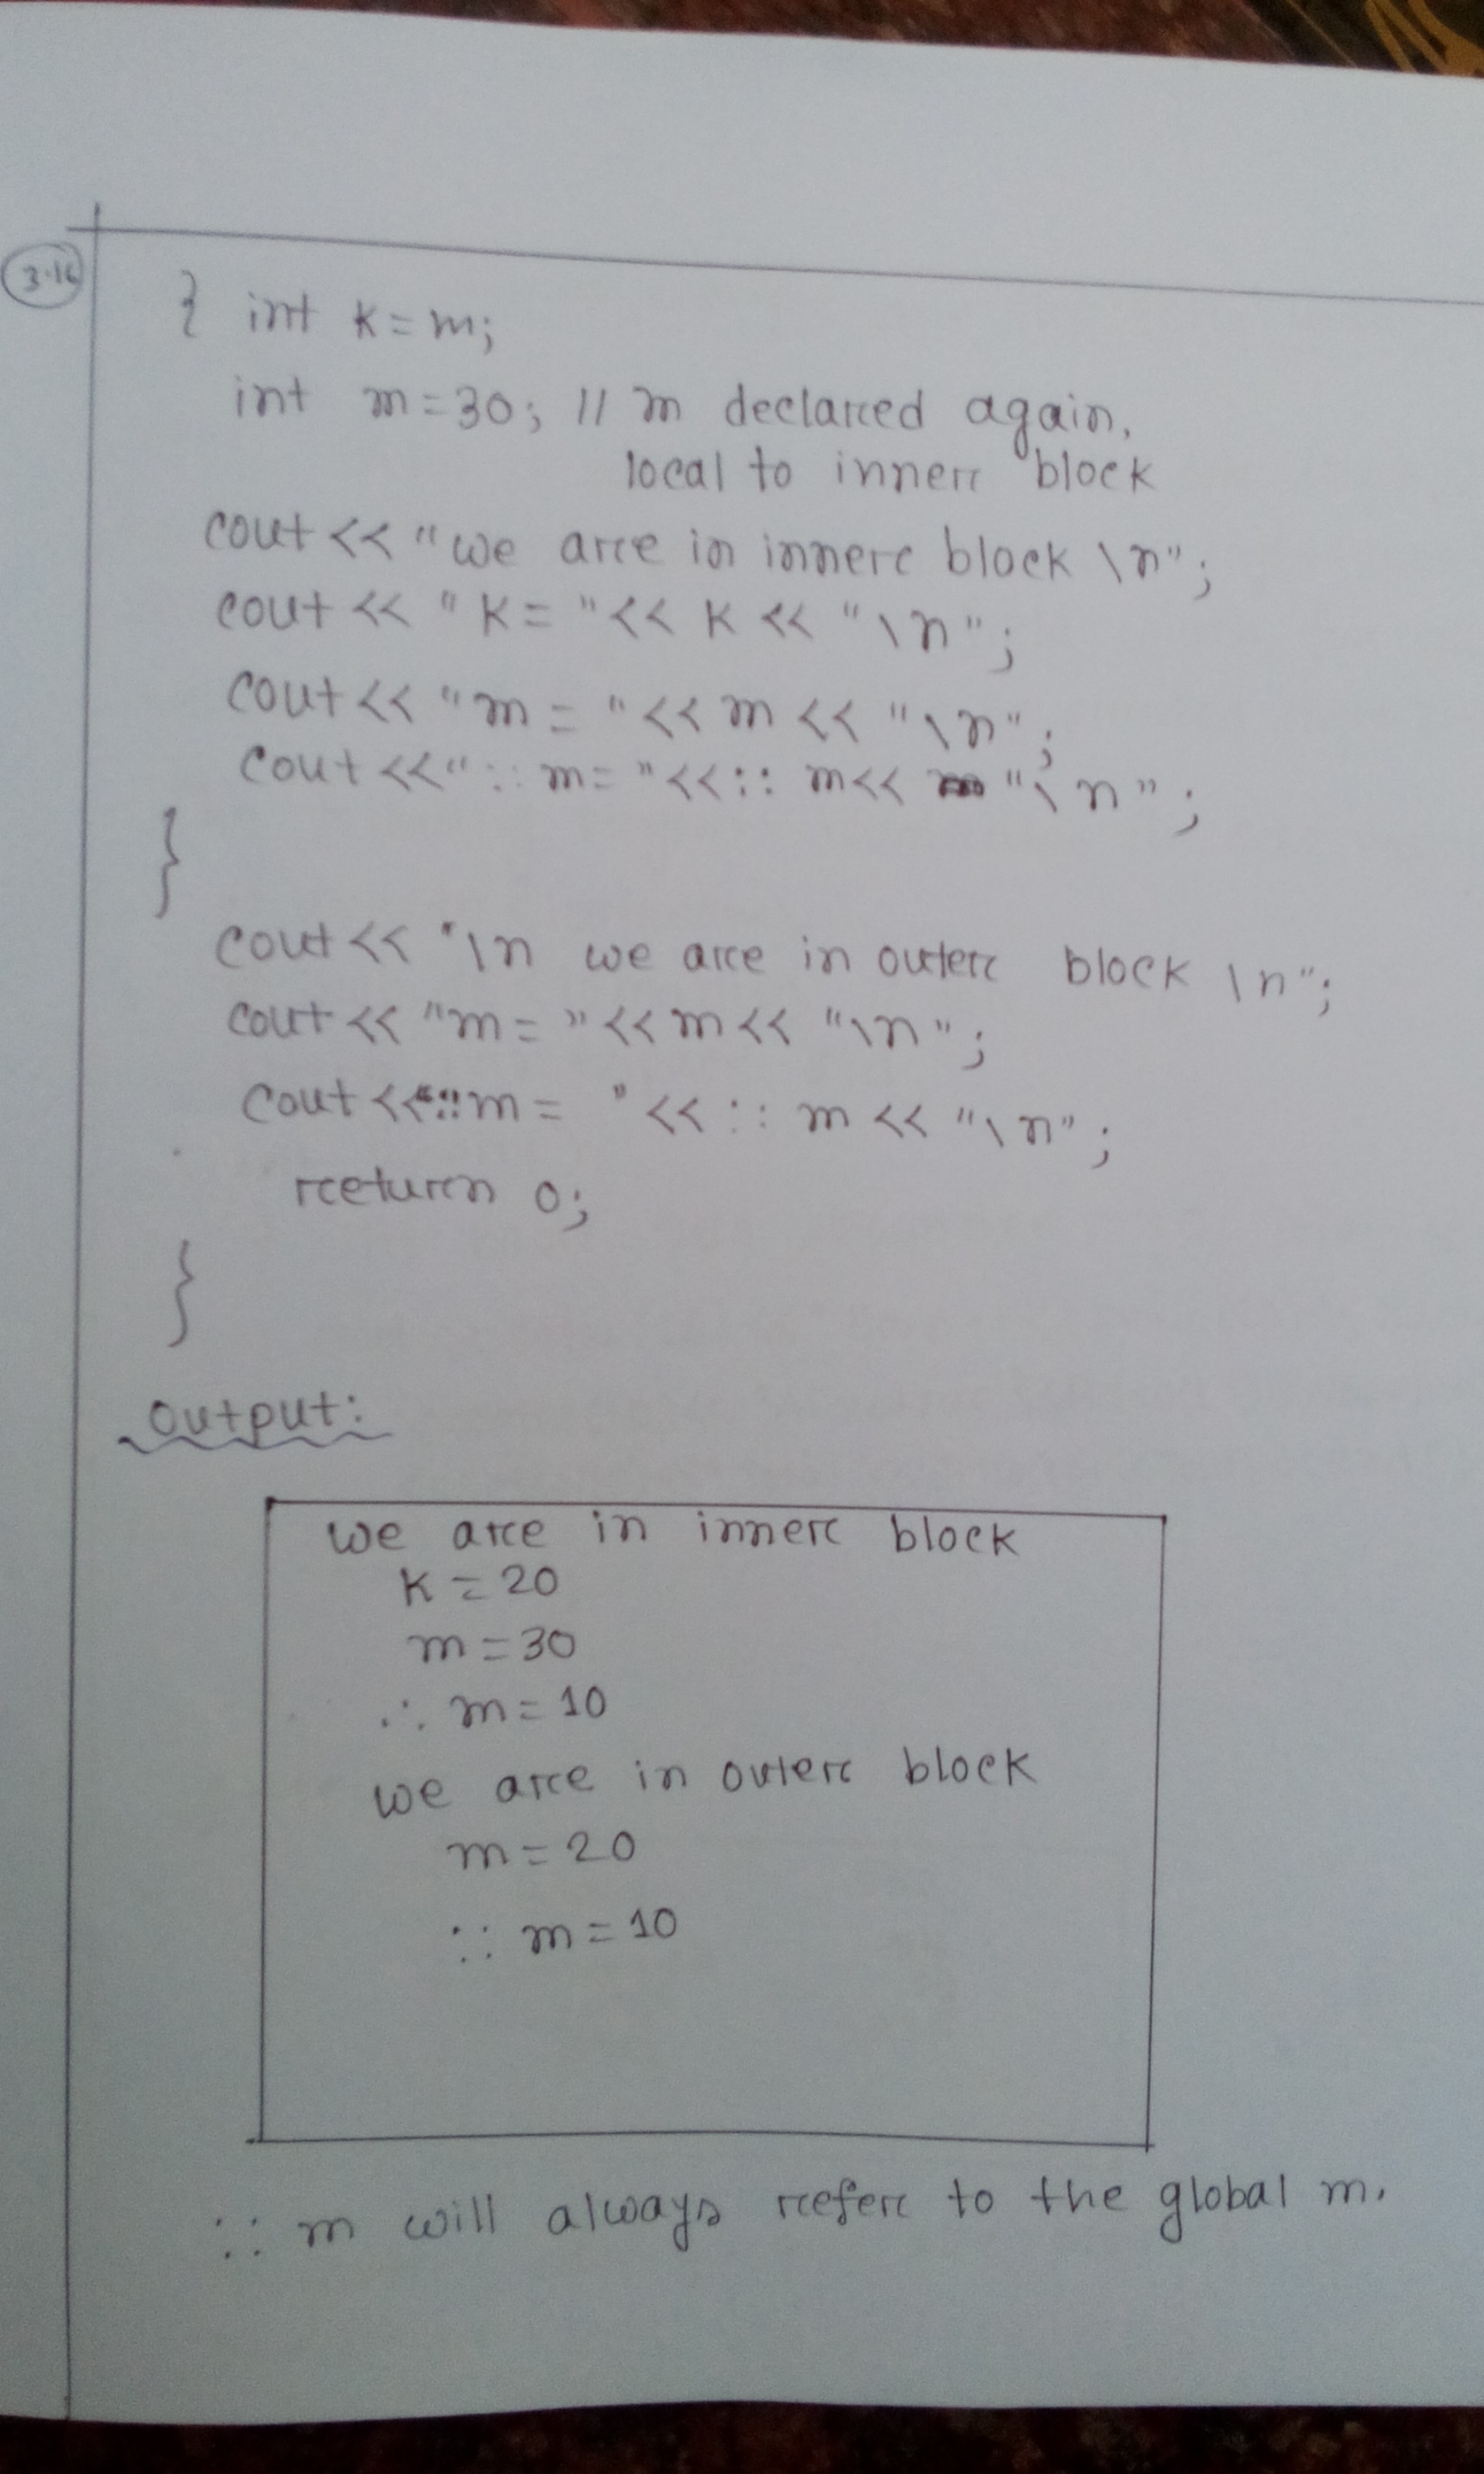 3.16
{ int k = m;
int m = 30; // m declared again,
local to inner block
cout << "we are in inner block \n";
cout << " k = " << k << "\n";
cout << "m = " << m << "\n";
cout << ":: m = " << :: m << "\n";
}
cout << "\n we are in outer block \n";
cout << "m = " << m << "\n";
cout << "::m = " << :: m << "\n";
return 0;
}
Output:
we are in inner block
k = 20
m = 30
:: m = 10
we are in outer block
m = 20
:: m = 10
:: m will always refer to the global m.